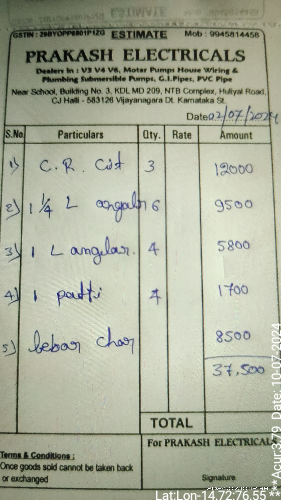 GSTIN : 29BYOPP8801P1ZG ESTIMATE Mob : 9945814458
PRAKASH ELECTRICALS
Dealers in : V3 V4 V6, Motor Pumps House Wiring &
Plumbing Submersible Pumps, G.I.Pipes, PVC Pipe
Near School, Building No. 3, KDL MD 209, NTB Complex, Huliyal Road,
CJ Halli - 583126 Vijayanagara Dt. Karnataka St.
Date 02/07/2024
S.No. Particulars Qty. Rate Amount
1) C.R. Cist 3 12000
2) 1 1/4 L angalar 6 9500
3) 1 L angilar. 4 5800
4) 1 patti 4 1700
5) lebar char 8500
37,500
TOTAL
Terms & Conditions : For PRAKASH ELECTRICAL
Once goods sold cannot be taken back
or exchanged Signature
Lat:Lon-14.72:76.55
***Acur:3.79 Date: 10-07-2024